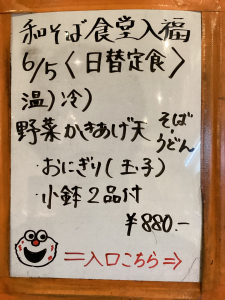 和そば食堂入福
6/5〈日替定食〉
温)冷)
野菜かきあげ天 そば・うどん
・おにぎり(玉子)
・小鉢2品付
¥880.-
=入口こちら⇒